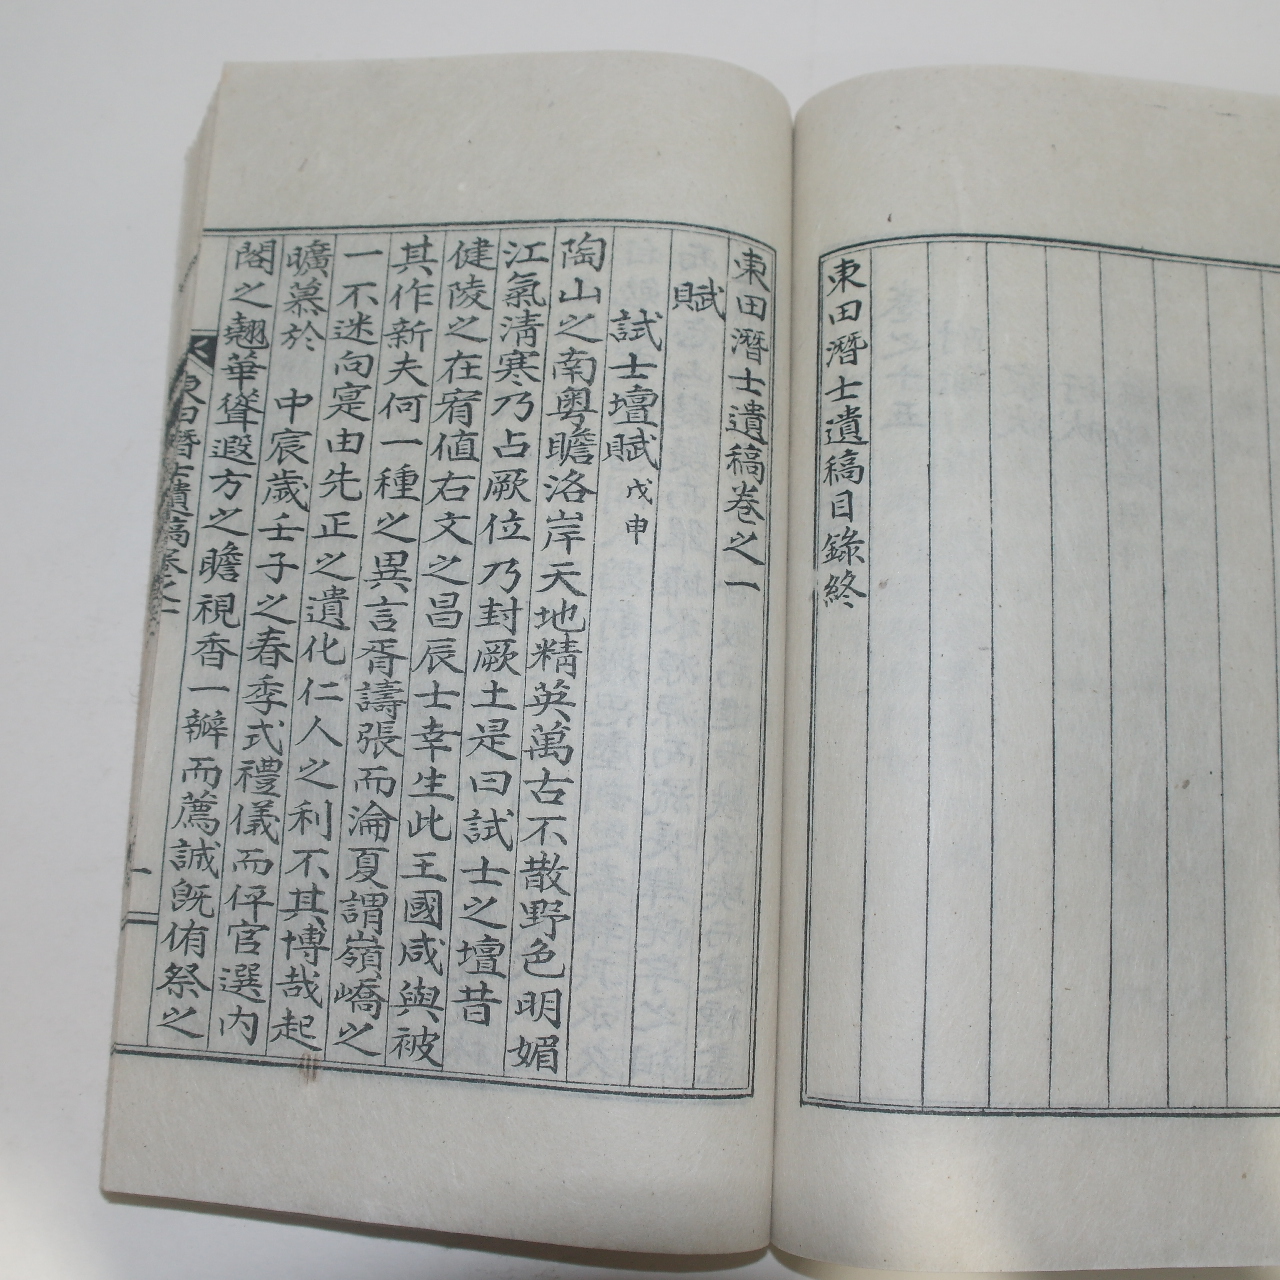 東田潛士遺稿目錄終
東田潛士遺稿卷之一
賦
試士壇賦 戊申
陶山之南粤瞻洛岸天地精英萬古不散野色明媚
江氣清寒乃占厥位乃封厥土是曰試士之壇昔
健陵之在宥值右文之昌辰士幸生此王國咸與被
其作新夫何一種之異言胥譸張而淪夏謂嶺嶠之
一不迷向寔由先正之遺化仁人之利不其博哉起
曠慕於 中宸歲壬子之春季式禮儀而伻官選內
閣之翹華聳遐方之瞻視香一瓣而薦誠旣侑祭之
東田潛士遺稿卷之一
一